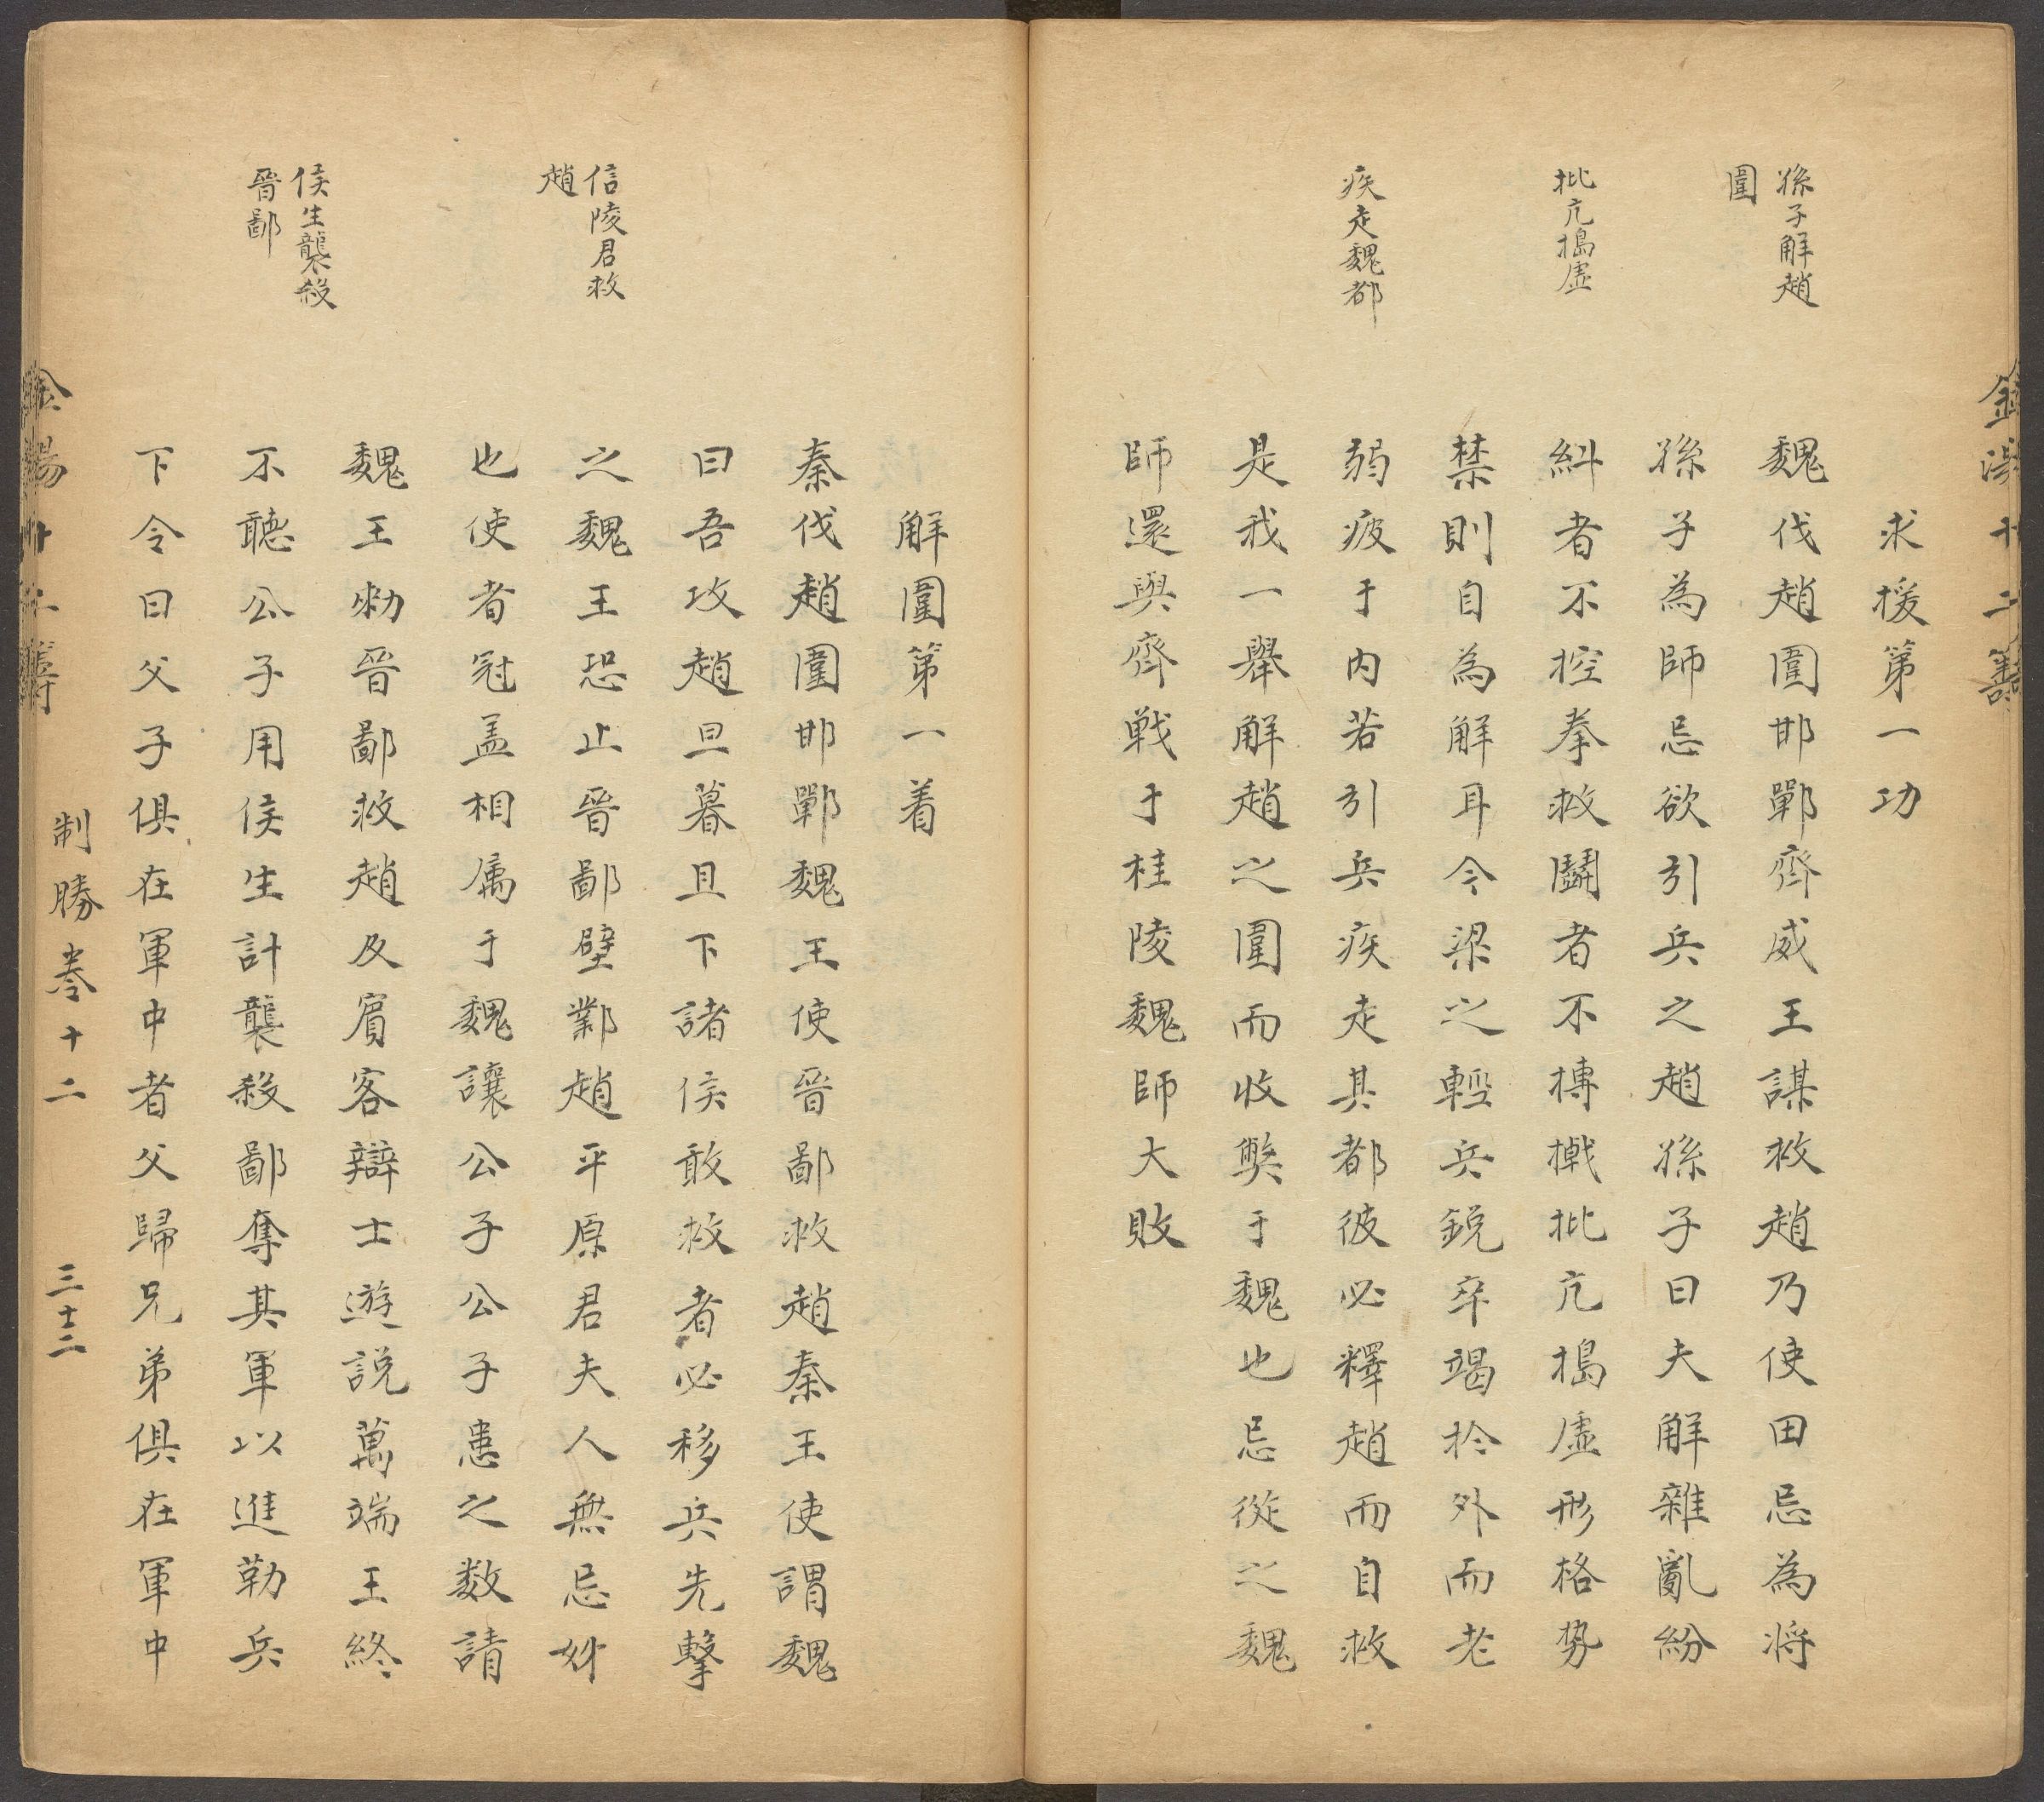 金湯十二籌
孫子解趙
圍
批亢搗虛
疾走魏都
求援第一功
魏伐趙圍邯鄲齊威王謀救趙乃使田忌為將
孫子為師忌欲引兵之趙孫子曰夫解雜亂紛
糾者不控拳救鬬者不摶撠批亢搗虛形格势
禁則自為解耳今梁之輕兵鋭卒竭於外而老
弱疲于内若引兵疾走其都彼必釋趙而自救
是我一舉解趙之圍而收獘于魏也忌從之魏
師還與齊戦于桂陵魏師大敗
信陵君救
趙
侯生襲殺
晉鄙
解圍第一着
秦伐趙圍邯鄲魏王使晉鄙救趙秦王使謂魏
曰吾攻趙旦暮且下諸侯敢救者必移兵先擊
之魏王恐止晉鄙壁鄴趙平原君夫人無忌姊
也使者冠盖相属于魏讓公子公子患之数請
魏王勑晉鄙救趙及賓客辯士遊説萬端王終
不聽公子用侯生計襲殺鄙奪其軍以進勒兵
下令曰父子俱在軍中者父歸兄弟俱在軍中
金湯十二籌 制勝卷十二 三十二